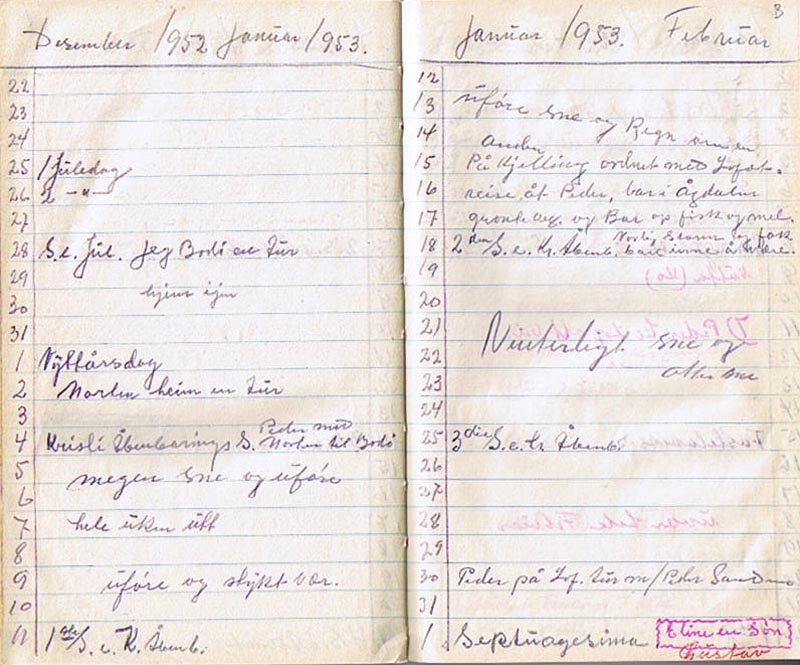 Desember 1952 Januar 1953.
22
23
24
25 1 Juledag
26 2 -"-
27
28 S.e. Jul. Jeg Bodö en tur
29
hjem igen
30
31
1 Nyttårsdag
2 Morten heim en tur
3
Peder med
4 Kristi Åbenbarings S. Morten til Bodö
5 megen sne og uföre
6
7 hele uken utt
8
9 uföre og stykt vær.
10
11 1ste S. e. K. Åbenb.
3
Januar 1953. Februar
12
13 uföre sne og Regn
14 anden
15 På Kjelling ordnet med Lofot-
16 reise åt Peder, bar i
17 og Bar op fisk og mel.
og fok
18 2den S. e. K. Åbenb. inne å være.
19
20
21 Vinterligt sne og
22
atter sne
23
24
25 3die S. e. K. Åbenb.
26
27
28
29
30 Peder på Lof. tur m/Peder Sandmo
31
1 Septuagesima Eline en Sön
Gustav